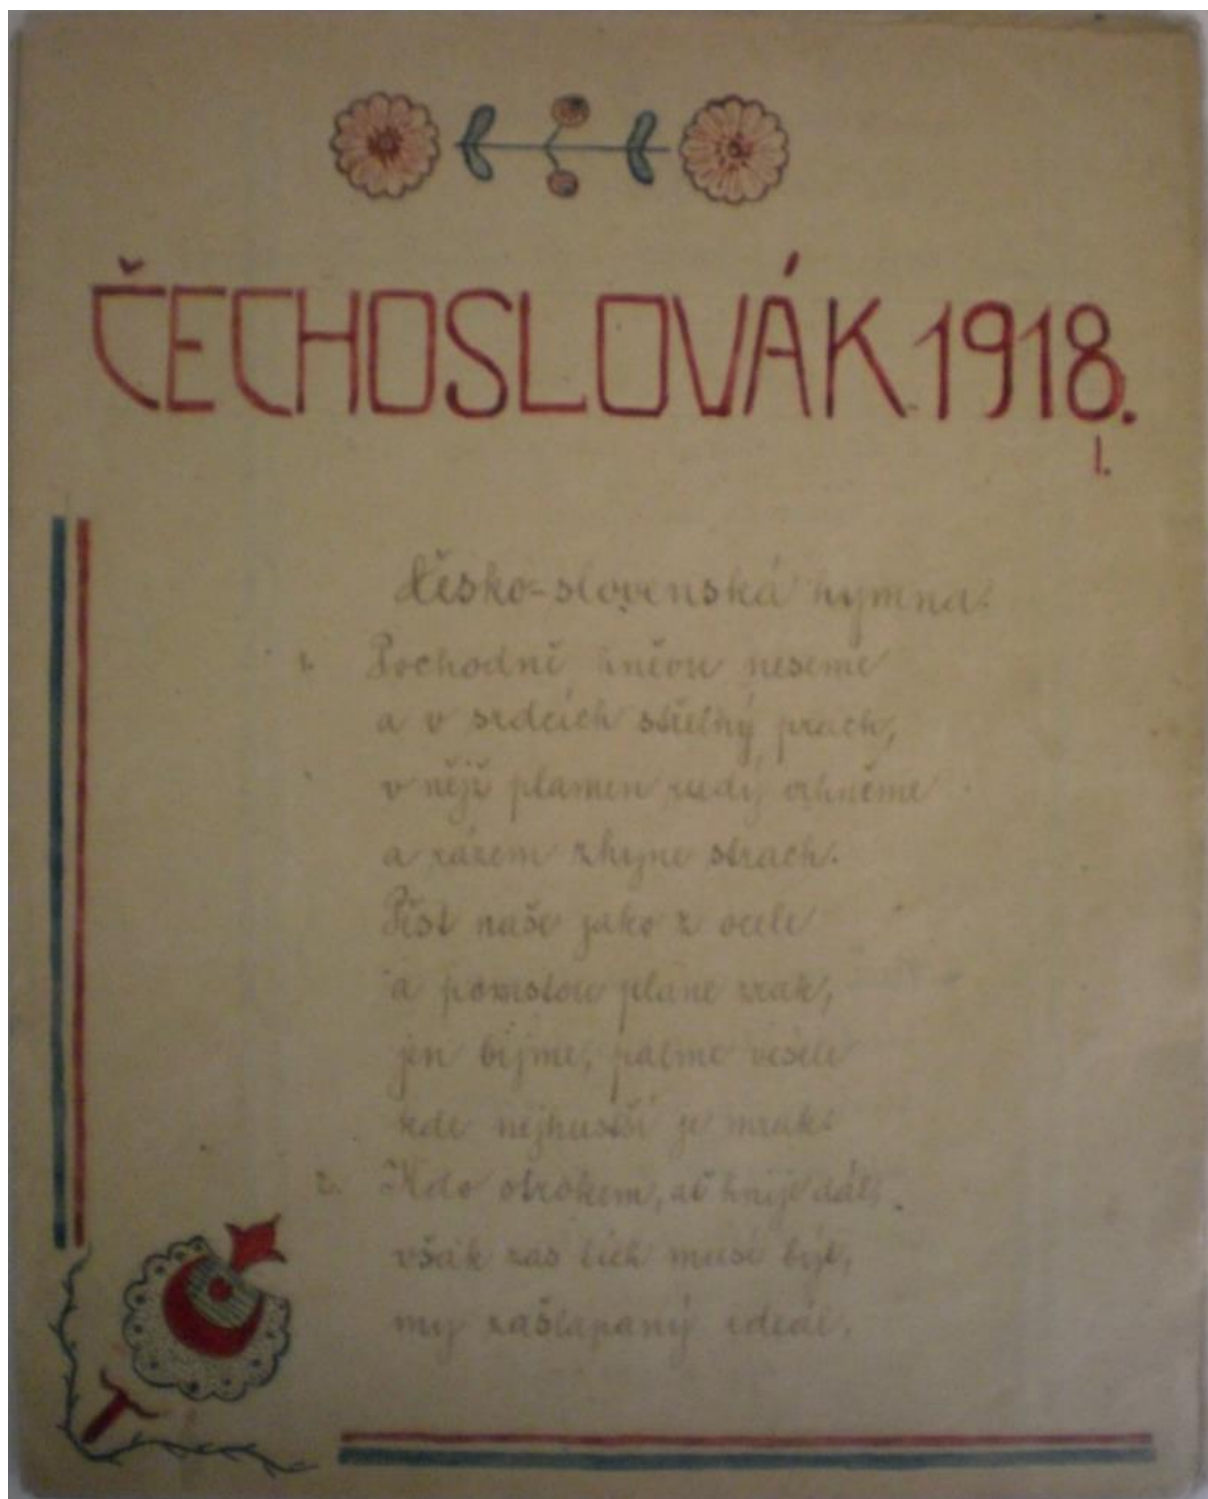 ČECHOSLOVÁK 1918.
I.
Česko-slovenská hymna.
1. Pochodně hněvu neseme
a v srdcích střelný prach,
v nějž plamen rudý vrhněme
a rázem zhyne strach.
Pěst naše jako z ocele
a pomstou plane zrak,
jen bijme, palme vesele
kde nejhustší je mrak.
2. Kdo otrokem, ať hnije dál,
však čas těch musí být,
my zašlapaný ideál,